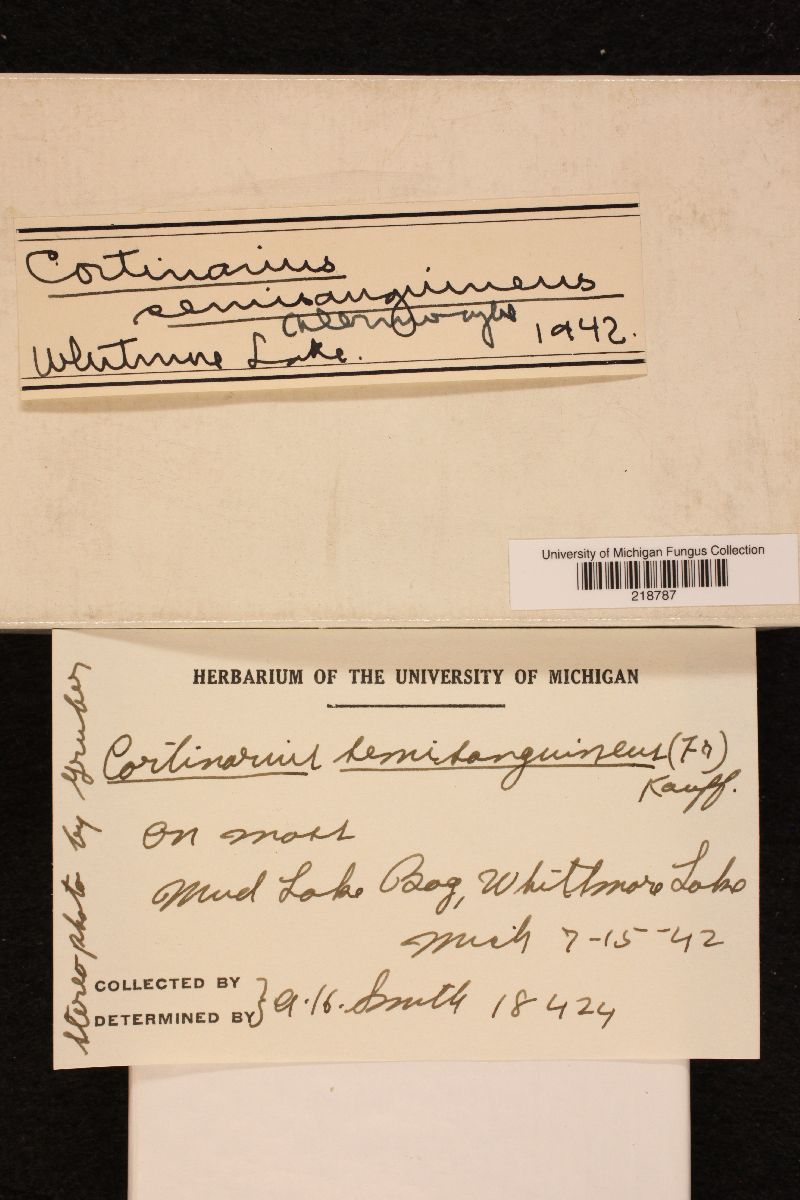 Cortinarius
semisanguineus
Whitmore Lake. 1942.
University of Michigan Fungus Collection
218787
HERBARIUM OF THE UNIVERSITY OF MICHIGAN
Cortinarius semisanguineus (Fr)
Kauff.
on moss
Mud Lake Bog, Whittmore Lake
Mich 7-15-42
COLLECTED BY
DETERMINED BY } A.H. Smith 18424
stereophoto by Gruber